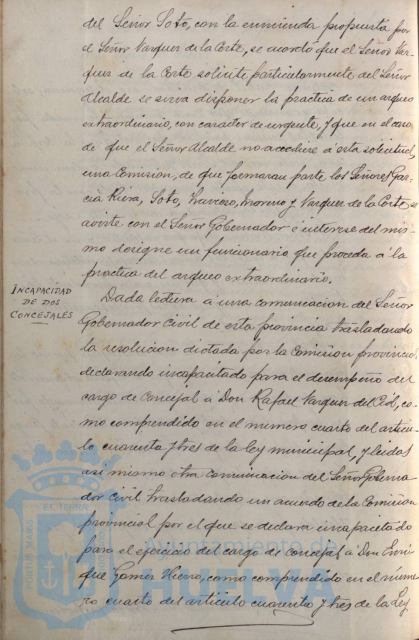 del Señor Soto, con la enmienda propuesta por
el Señor Vazquez de la Corte, se acordó que el Señor Vaz-
quez de la Corte solicite particularmente del Señor
Alcalde se sirva disponer la practica de un arqueo
extraordinario, con caracter de urgente, y que en el caso
de que el Señor Alcalde no accediere á esta solicitud,
una Comision, de que formaran parte los Señores Gar-
cia Riera, Soto, Traviero, Moreno y Vazquez de la Corte, se
aviste con el Señor Gobernador é interese del mis-
mo designe un funcionario que proceda á la
practica del arqueo extraordinario.
INCAPACIDAD
DE DOS
CONCEJALES
Dada lectura á una comunicacion del Señor
Gobernador Civil de esta provincia trasladando
la resolucion dictada por la Comision provincial
declarando incapacitado para el desempeño del
cargo de Concejal á Don Rafael Vazquez del Cid, co-
mo comprendido en el numero cuarto del artícu-
lo cuarenta y tres de la ley municipal, y leidos
asi mismo otra comunicacion del Señor Goberna-
dor Civil trasladando un acuerdo de la Comision
provincial por el que se declara incapacitado
para el ejercicio del cargo de concejal á Don Enri-
que Gomez Hiero, como comprendido en el núme-
ro cuarto del artículo cuarenta y tres de la Ley
PORTUS MARIS
ET TERRAE
Ayuntamiento de
HUELVA